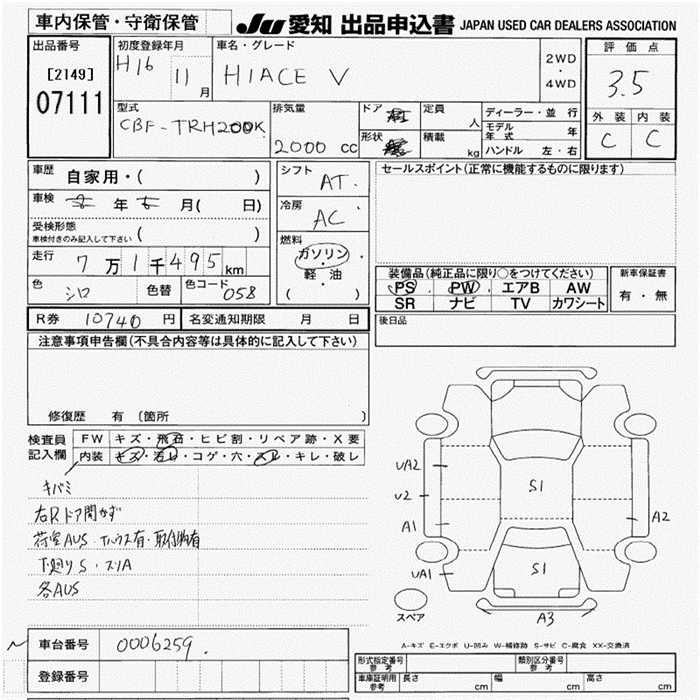 車内保管・守衛保管
JU 愛知 出品申込書 JAPAN USED CAR DEALERS ASSOCIATION
出品番号
[2149]
07111
初度登録年月
H16 11月
車名・グレード
HIACE V
2WD
・
4WD
評価点
3.5
外装 内装
C C
型式
CBF-TRH200K
排気量
2000 cc
ドア
形状
定員 人
積載 kg
ディーラー・並行
モデル年式 年
ハンドル 左・右
車歴 自家用・( )
車検 年 月( 日)
受検形態
車検付きのみ記入して下さい ( )
走行 7万1千495km
色 シロ 色替 色コード 058
シフト
AT
冷房
AC
燃料
ガソリン
・
軽・油
( )
セールスポイント(正常に機能するものに限ります)
装備品(純正品に限り○をつけてください)
PS PW エアB AW
SR ナビ TV カワシート
新車保証書
有・無
R券 10740 円 名変通知期限 月 日
後日品
注意事項申告欄(不具合内容等は具体的に記入して下さい)
修復歴 有 (箇所 )
検査員記入欄
FW キズ・飛石・ヒビ割・リペア跡・X要
内装 キズ・汚レ・コゲ・穴・スレ・キレ・破レ
キバミ
右Rドア開かず
荷室AUS 有・取付物有
下廻りS・スリA
各AUS
UA2
U2
A1
UA1
S1
S1
A2
A3
スペア
A-キズ E-エクボ U-凹み W-補修跡 S-サビ C-腐食 XX-交換済
車台番号 0006259
登録番号
形式指定番号 参考
類別区分番号 参考
車庫証明用 参考 長さ cm 幅 cm 高さ cm